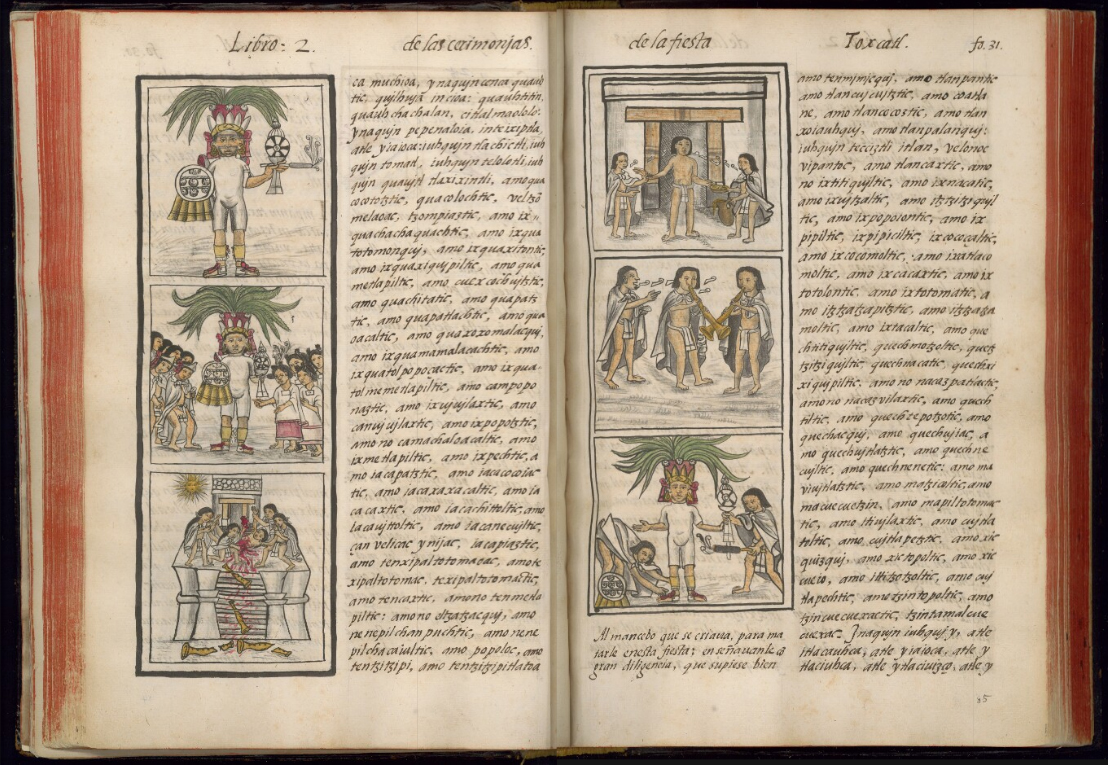 Libro: 2. de las cerimonjas.
ca muchioa, ynaqujn cenca quauh
tic, qujlhuja in cioa: quauhtitin,
quauhchachalan, citlalmaololo:
ynaqujn pepenaloia, inteixiptla,
atle yiaioca: iuhqujn tlachictli, iuh
qujn tomatl, iuhqujn telolotli, iuh
qujn quaujtl tlaxixintli, amo qua
cocototztic, quacolochtic, vel tzõ
melaoac, tzompiaztic, amo ix
quachachaquachtic, amo ixqua
totomonquj, amo ixquaxitontic,
amo ixquaxiqujpiltic, amo qua
metlapiltic, amo cuexcochujtztic,
amo quachitatic, amo quapatz
tic, amo quapatlachtic, amo qua
oacaltic, amo quaxoxomalacquj,
amo ixquamamalacachtic, amo
ixquatolpopocactic, amo ixqua
tolmemetlapiltic, amo campopo
naztic, amo ixujujlaxtic, amo
canvivilaxtic, amo ixpopotztic,
amo no camachaloacaltic, amo
ixmetlapiltic, amo ixpechtic, a
mo iacapatztic, amo iacacocoiac
tic, amo iacaxaxacaltic, amo ia
cacaxtic, amo iacachittoltic, amo
iacaujttoltic, amo iacanecujltic,
çan velicac ynijac, iacapiaztic,
amo tenxipaltotomaoac, amo te
xipaltotomac, texipaltotomactic,
amo tencaxtic, amo no tenmetla
piltic: amo no eltzatzacquj, amo
nenepilchanpuchtic, amo nene
pilchacaiultic, amo popoloc, amo
tentzitzipi, amo tentzitzipitlatoa
de la fiesta Toxcatl. fo. 31.
Al mancebo que se criaua, para ma
tarle enesta fiesta; enseñauanle cõ
gran diligencia, que supiese bien
amo tenmjmjcquj, amo tlanpantic
amo tlancujcujtztic, amo coatla
ne, amo tlancocoztic, amo tlan
xoiauhquj, amo tlanpalanquj:
iuhqujn tecciztli itlan, velonoc
vipantoc, amo tlancaxtic, amo
no ixtitiqujltic, amo ixnacatic,
amo ixujtzaltic, amo itztzitziqujl
tic, amo ixpopoiontic, amo ix
pipiltic, ixpipiciltic, ixcocoçaltic,
amo ixcocomoltic, amo ixatlaco
moltic, amo ixcacaxtic, amo ix
totolontic, amo ixtotomatic, a
mo itztzatzapitztic, amo itzçaça
moltic, amo ixtacaltic, amo que
chtitiqujltic, quechmotzoltic, quech
tzitziqujltic, quechnacatic, quechxi
xiqujpiltic, amo no nacazpatlactic,
amo no nacazvilaxtic, amo quech
tiltic, amo quechtepotzotic, amo
quechacquj, amo quechujac, a
mo quechujtlatztic, amo quechne
cujltic, amo quechnenetic: amo ma
viujtlatztic, amo matzicoltic, amo
macuecuetzin, amo mapiltotomac
tic, amo itivjlaxtic, amo cujtla
toltic, amo, cujtlapetztic, amo xic
quizquj, amo xictopoltic, amo xic
cueio, amo ititzotzoltic, amo cuj
tlapechtic, amo tzintopoltic, amo
tzincuecuexactic, tzintamalcue
cuexac. Jnaqujn iuhquj y, atle
itlacauhca, atle yiaioca, atle y
tlaciuhca, atle ytlaciuizco, atle y